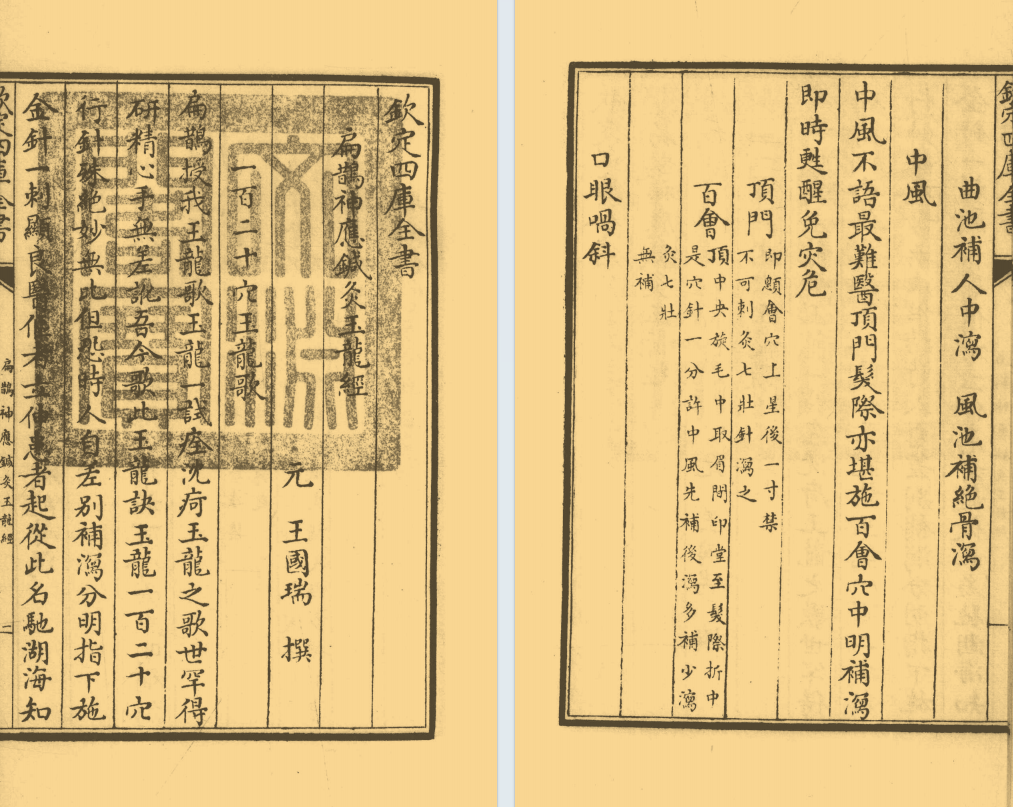 欽定四庫全書
扁鵲神應鍼灸玉龍經
元 王國瑞 撰
一百二十穴玉龍歌
扁鵲授我玉龍歌玉龍一試痊沈疴玉龍之歌世罕得
研精心手無差訛吾今歌此玉龍訣玉龍一百二十穴
行針殊絶妙無比但恐時人自差別補瀉分明指下施
金針一刺顯良醫立伸患者起從此名馳湖海知
欽定四庫全書
扁鵲神應鍼灸玉龍經
一
欽定四庫全書
曲池補人中瀉 風池補絶骨瀉
中風
中風不語最難醫頂門髮際亦堪施百會穴中明補瀉
即時甦醒免災危
頂門 即顖會穴上星後一寸禁
不可刺灸七壯針瀉之
百會 頂中央旋毛中取眉間印堂至髮際折中
是穴針一分許中風先補後瀉多補少瀉
灸七壯
無補
口眼喎斜